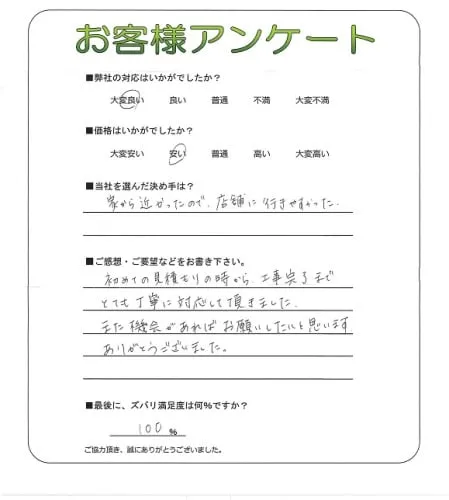 お客様アンケート
■弊社の対応はいかがでしたか？
大変良い 良い 普通 不満 大変不満
■価格はいかがでしたか？
大変安い 安い 普通 高い 大変高い
■当社を選んだ決め手は？
家から近かったので、店舗に行きやすかった.
■ご感想・ご要望などをお書き下さい。
初めての見積もりの時から、工事完了まで
とても丁寧に対応して頂きました.
また機会があればお願いしたいと思います
ありがとうございました。
■最後に、ズバリ満足度は何%ですか？
100 %
ご協力頂き、誠にありがとうございました。